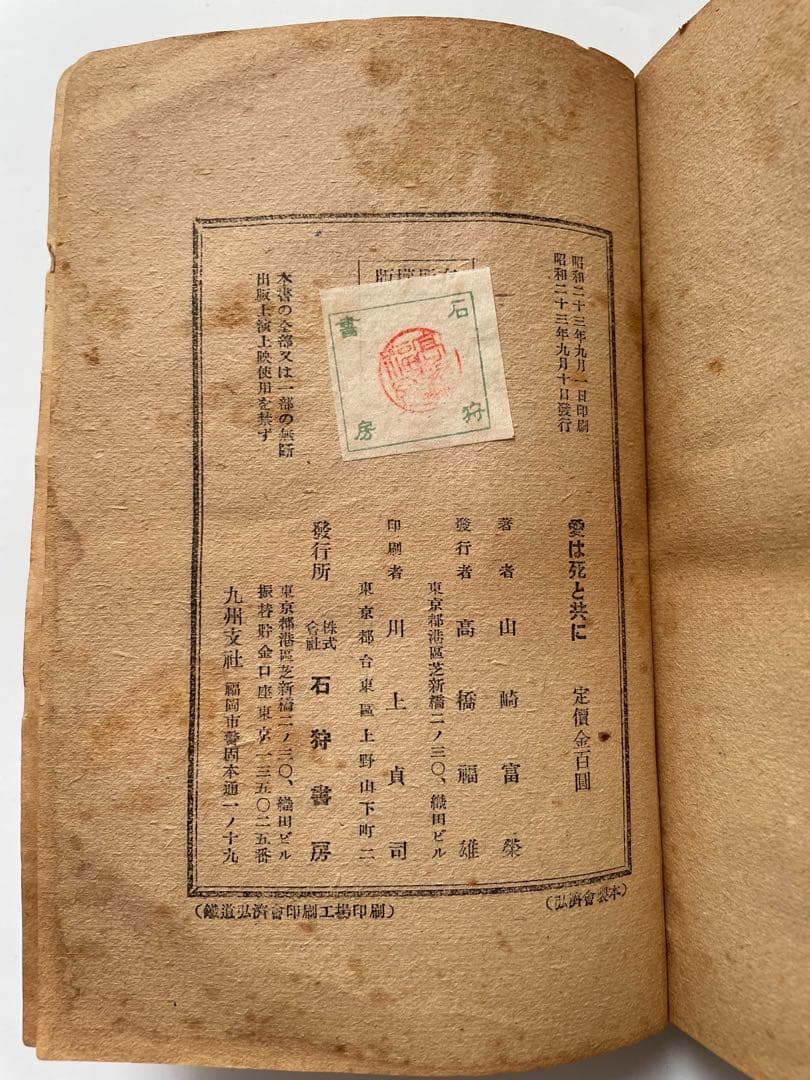 昭和二十三年九月一日印刷
昭和二十三年九月十日發行
愛は死と共に 定價金百圓
著者 山崎富榮
發行者 高橋福雄
東京都港區芝新橋二ノ三〇、織田ビル
印刷者 川上貞司
東京都台東區上野山下町二
發行所 株式會社 石狩書房
東京都港區芝新橋二ノ三〇、織田ビル
振替貯金口座東京一三五〇二五番
九州支社 福岡市警固本通一ノ十九
石狩書房
本書の全部又は一部の無断
出版上演上映使用を禁ず
(弘濟會製本)
(鐵道弘濟會印刷工場印刷)